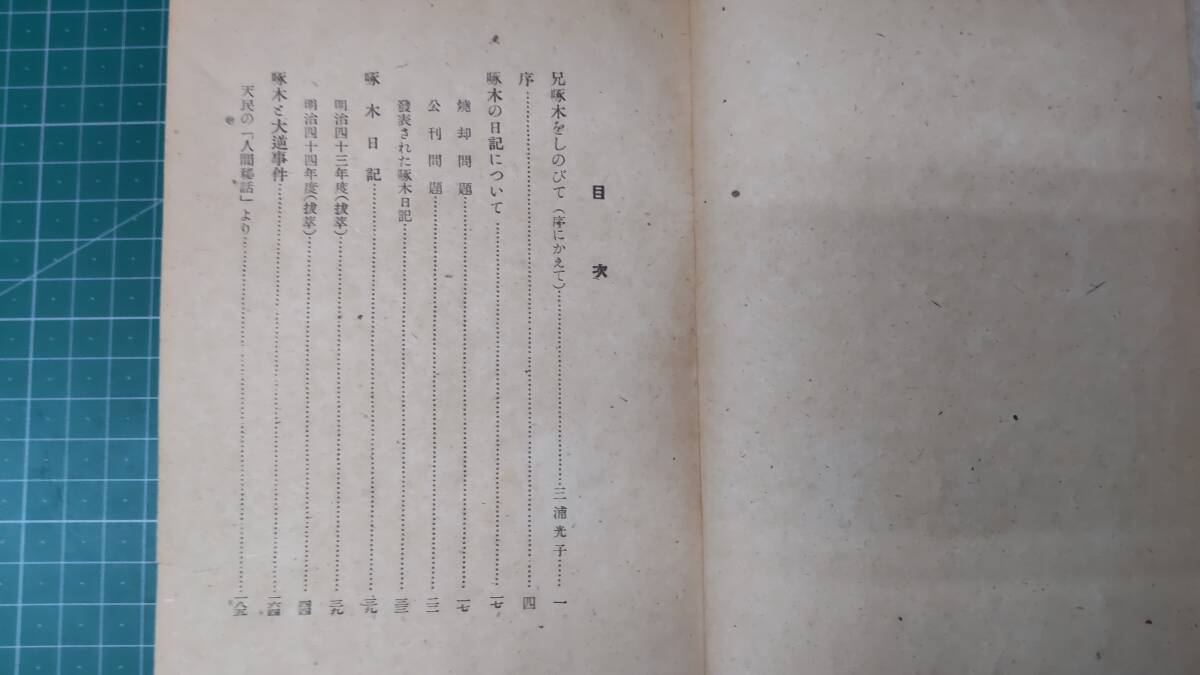 目次
兄啄木をしのびて（序にかえて）……三浦光子……一
序……四
啄木の日記について……一七
燒却問題……一七
公刊問題……二二
發表された啄木日記……三三
啄木日記……三九
明治四十三年度（拔萃）……三九
明治四十四年度（拔萃）……四四
啄木と大逆事件……一六四
天民の「人間秘話」より……一八五